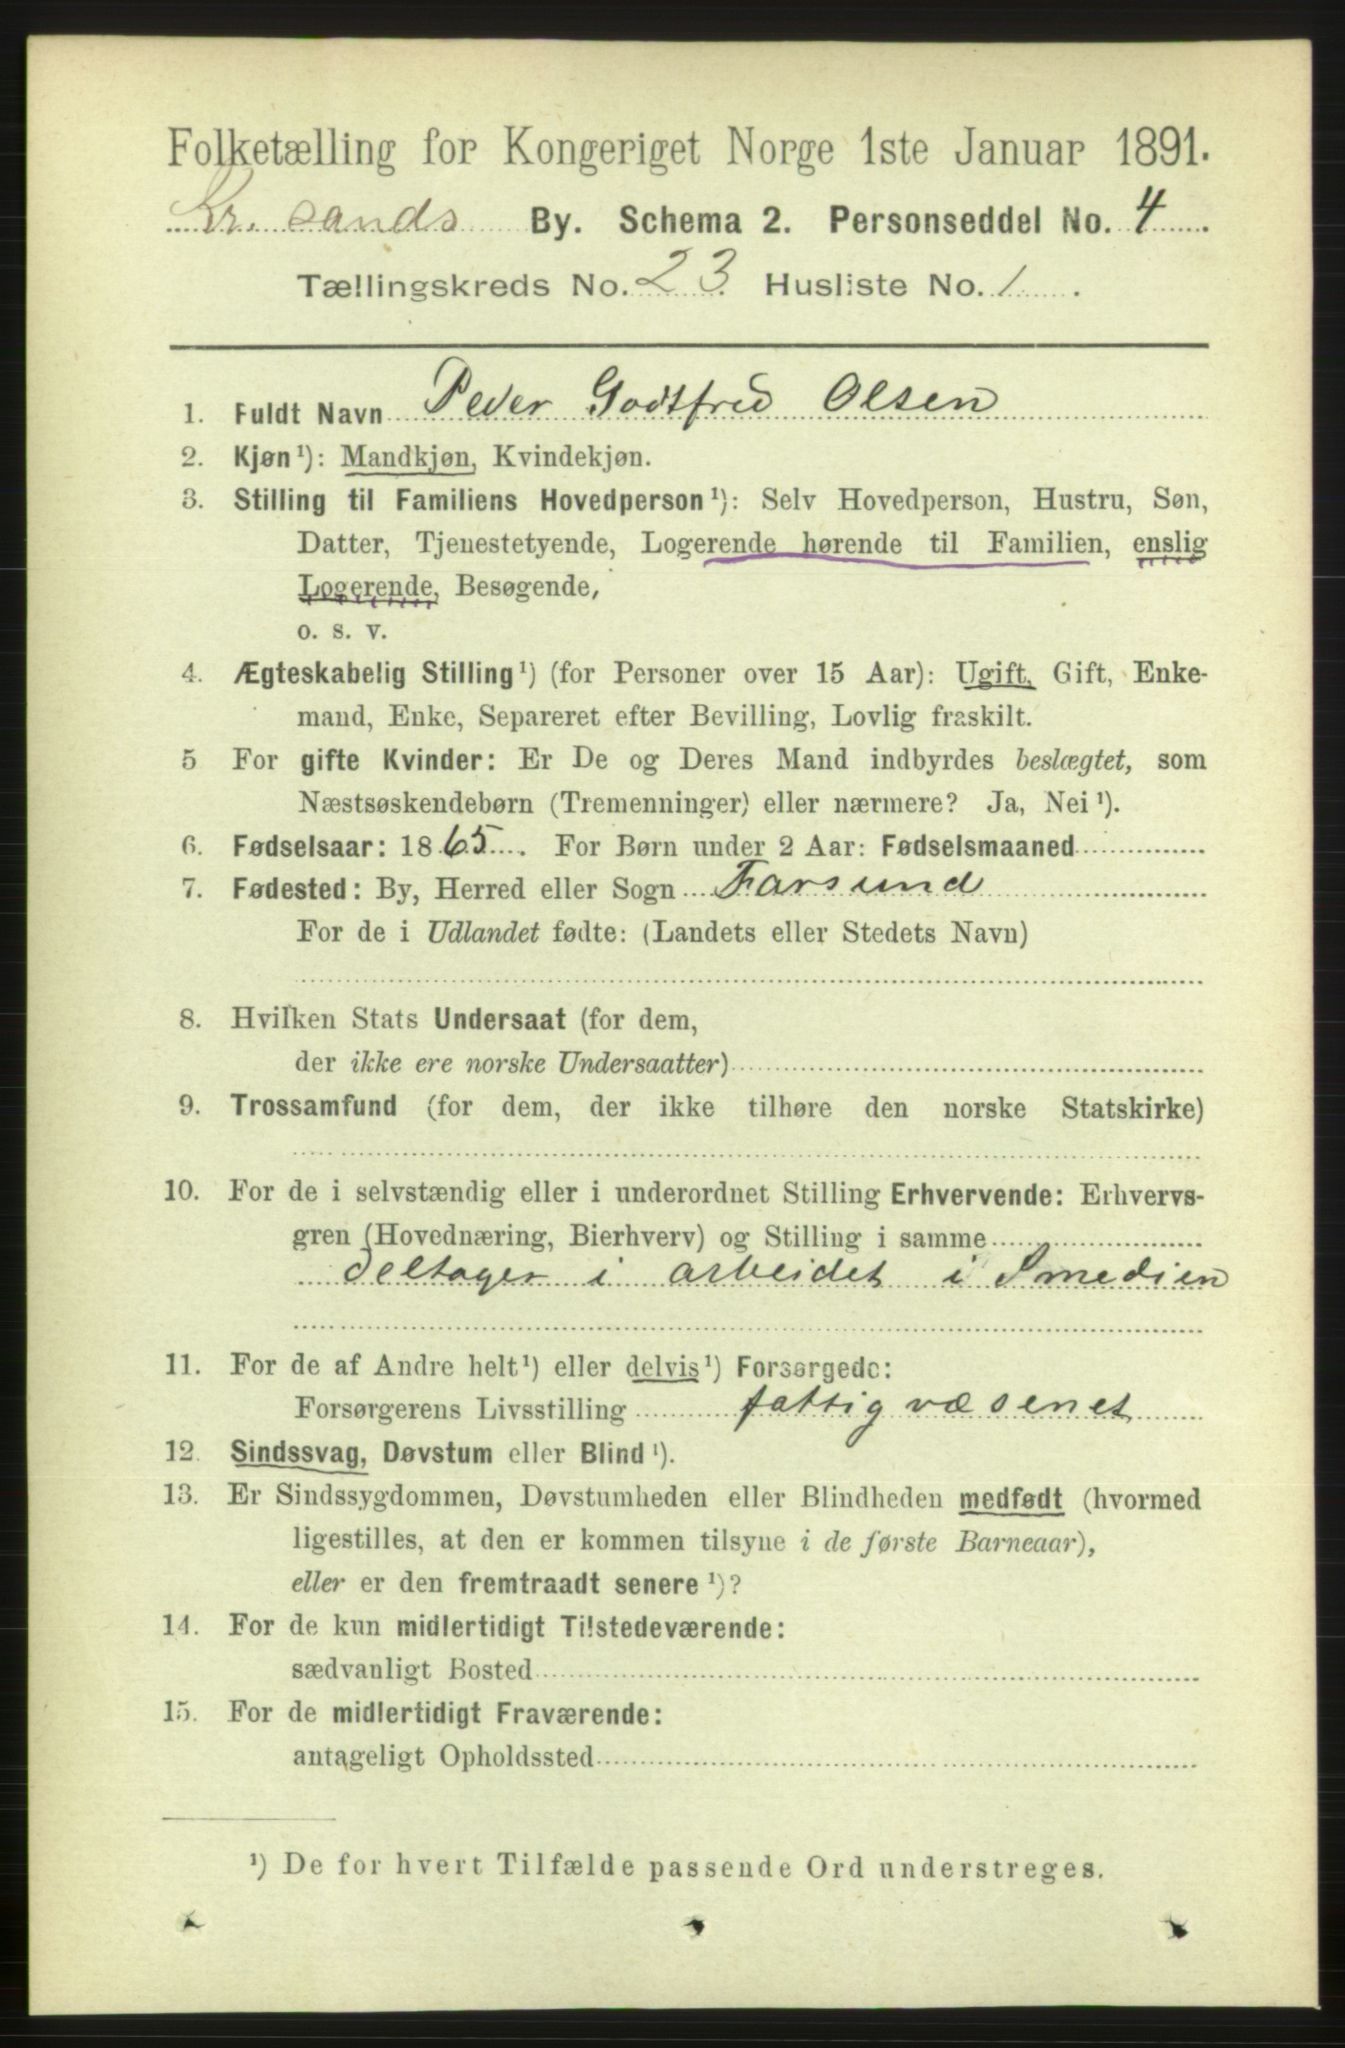 Folketælling for Kongeriget Norge 1ste Januar 1891.
Kr.sands By. Schema 2. Personseddel No. 4
Tællingskreds No. 23 Husliste No. 1.
1. Fuldt Navn Peder Godtfred Olsen
2. Kjøn¹): Mandkjøn, Kvindekjøn.
3. Stilling til Familiens Hovedperson¹): Selv Hovedperson, Hustru, Søn,
Datter, Tjenestetyende, Logerende hørende til Familien, enslig
Logerende, Besøgende,
o. s. v.
4. Ægteskabelig Stilling¹) (for Personer over 15 Aar): Ugift, Gift, Enke-
mand, Enke, Separeret efter Bevilling, Lovlig fraskilt.
5 For gifte Kvinder: Er De og Deres Mand indbyrdes beslægtet, som
Næstsøskendebørn (Tremenninger) eller nærmere? Ja, Nei¹).
6. Fødselsaar: 1865. For Børn under 2 Aar: Fødselsmaaned
7. Fødested: By, Herred eller Sogn Farsund
For de i Udlandet fødte: (Landets eller Stedets Navn)
8. Hvilken Stats Undersaat (for dem,
der ikke ere norske Undersaatter)
9. Trossamfund (for dem, der ikke tilhøre den norske Statskirke)
10. For de i selvstændig eller i underordnet Stilling Erhvervende: Erhvervs-
gren (Hovednæring, Bierhverv) og Stilling i samme
deltager i arbeidet i Smedien
11. For de af Andre helt¹) eller delvis¹) Forsørgede:
Forsørgerens Livsstilling fattigvæsenet
12. Sindssvag, Døvstum eller Blind¹).
13. Er Sindssygdommen, Døvstumheden eller Blindheden medfødt (hvormed
ligestilles, at den er kommen tilsyne i de første Barneaar),
eller er den fremtraadt senere¹)?
14. For de kun midlertidigt Tilstedeværende:
sædvanligt Bosted
15. For de midlertidigt Fraværende:
antageligt Opholdssted
¹) De for hvert Tilfælde passende Ord understreges.